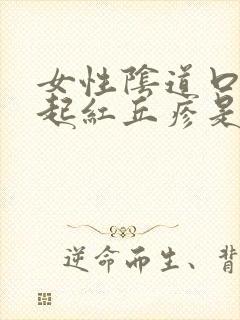 女性陰道口
起紅丘疹是
逆命而生、背